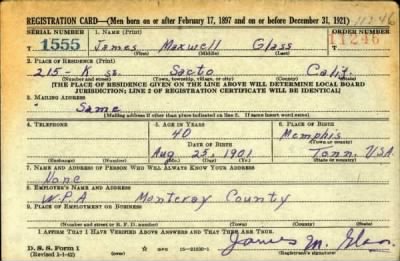 REGISTRATION CARD—(Men born on or after February 17, 1897 and on or before December 31, 1921) 11246
SERIAL NUMBER 1. NAME (Print) ORDER NUMBER
T 1555 James Maxwell Glass T 11246
(First) (Middle) (Last)
2. PLACE OF RESIDENCE (Print)
215-K St. Sacto Calif.
(Number and street) (Town, township, village, or city) (County) (State)
[THE PLACE OF RESIDENCE GIVEN ON THE LINE ABOVE WILL DETERMINE LOCAL BOARD
JURISDICTION; LINE 2 OF REGISTRATION CERTIFICATE WILL BE IDENTICAL]
3. MAILING ADDRESS
Same
[Mailing address if other than place indicated on line 2. If same insert word same]
4. TELEPHONE 5. AGE IN YEARS 6. PLACE OF BIRTH
40 Memphis
DATE OF BIRTH (Town or county)
Aug 25, 1901 Tenn. USA
(Exchange) (Number) (Mo.) (Day) (Yr.) (State or country)
7. NAME AND ADDRESS OF PERSON WHO WILL ALWAYS KNOW YOUR ADDRESS
None
8. EMPLOYER'S NAME AND ADDRESS
W.P.A Monteray County
9. PLACE OF EMPLOYMENT OR BUSINESS
(Number and street or R. F. D. number) (Town) (County) (State)
I AFFIRM THAT I HAVE VERIFIED ABOVE ANSWERS AND THAT THEY ARE TRUE.
D. S. S. Form 1 GPO 16—21630-1 James M. Glass
(Revised 1-1-42) (Registrant's signature)